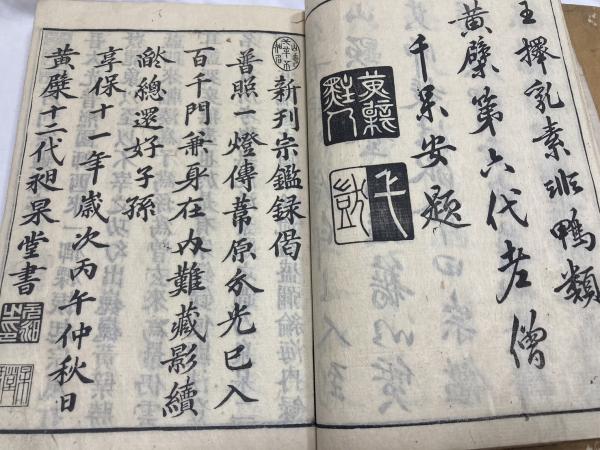 王擇乳素非鴨類
黃檗第六代老僧
千呆安題
新刊宗鑑録偈
普照一燈傳葦原分光已入
百千門兼身在内難藏影續
燄總還好子孫
享保十一年歳次丙午仲秋日
黃檗十二代昶杲堂書